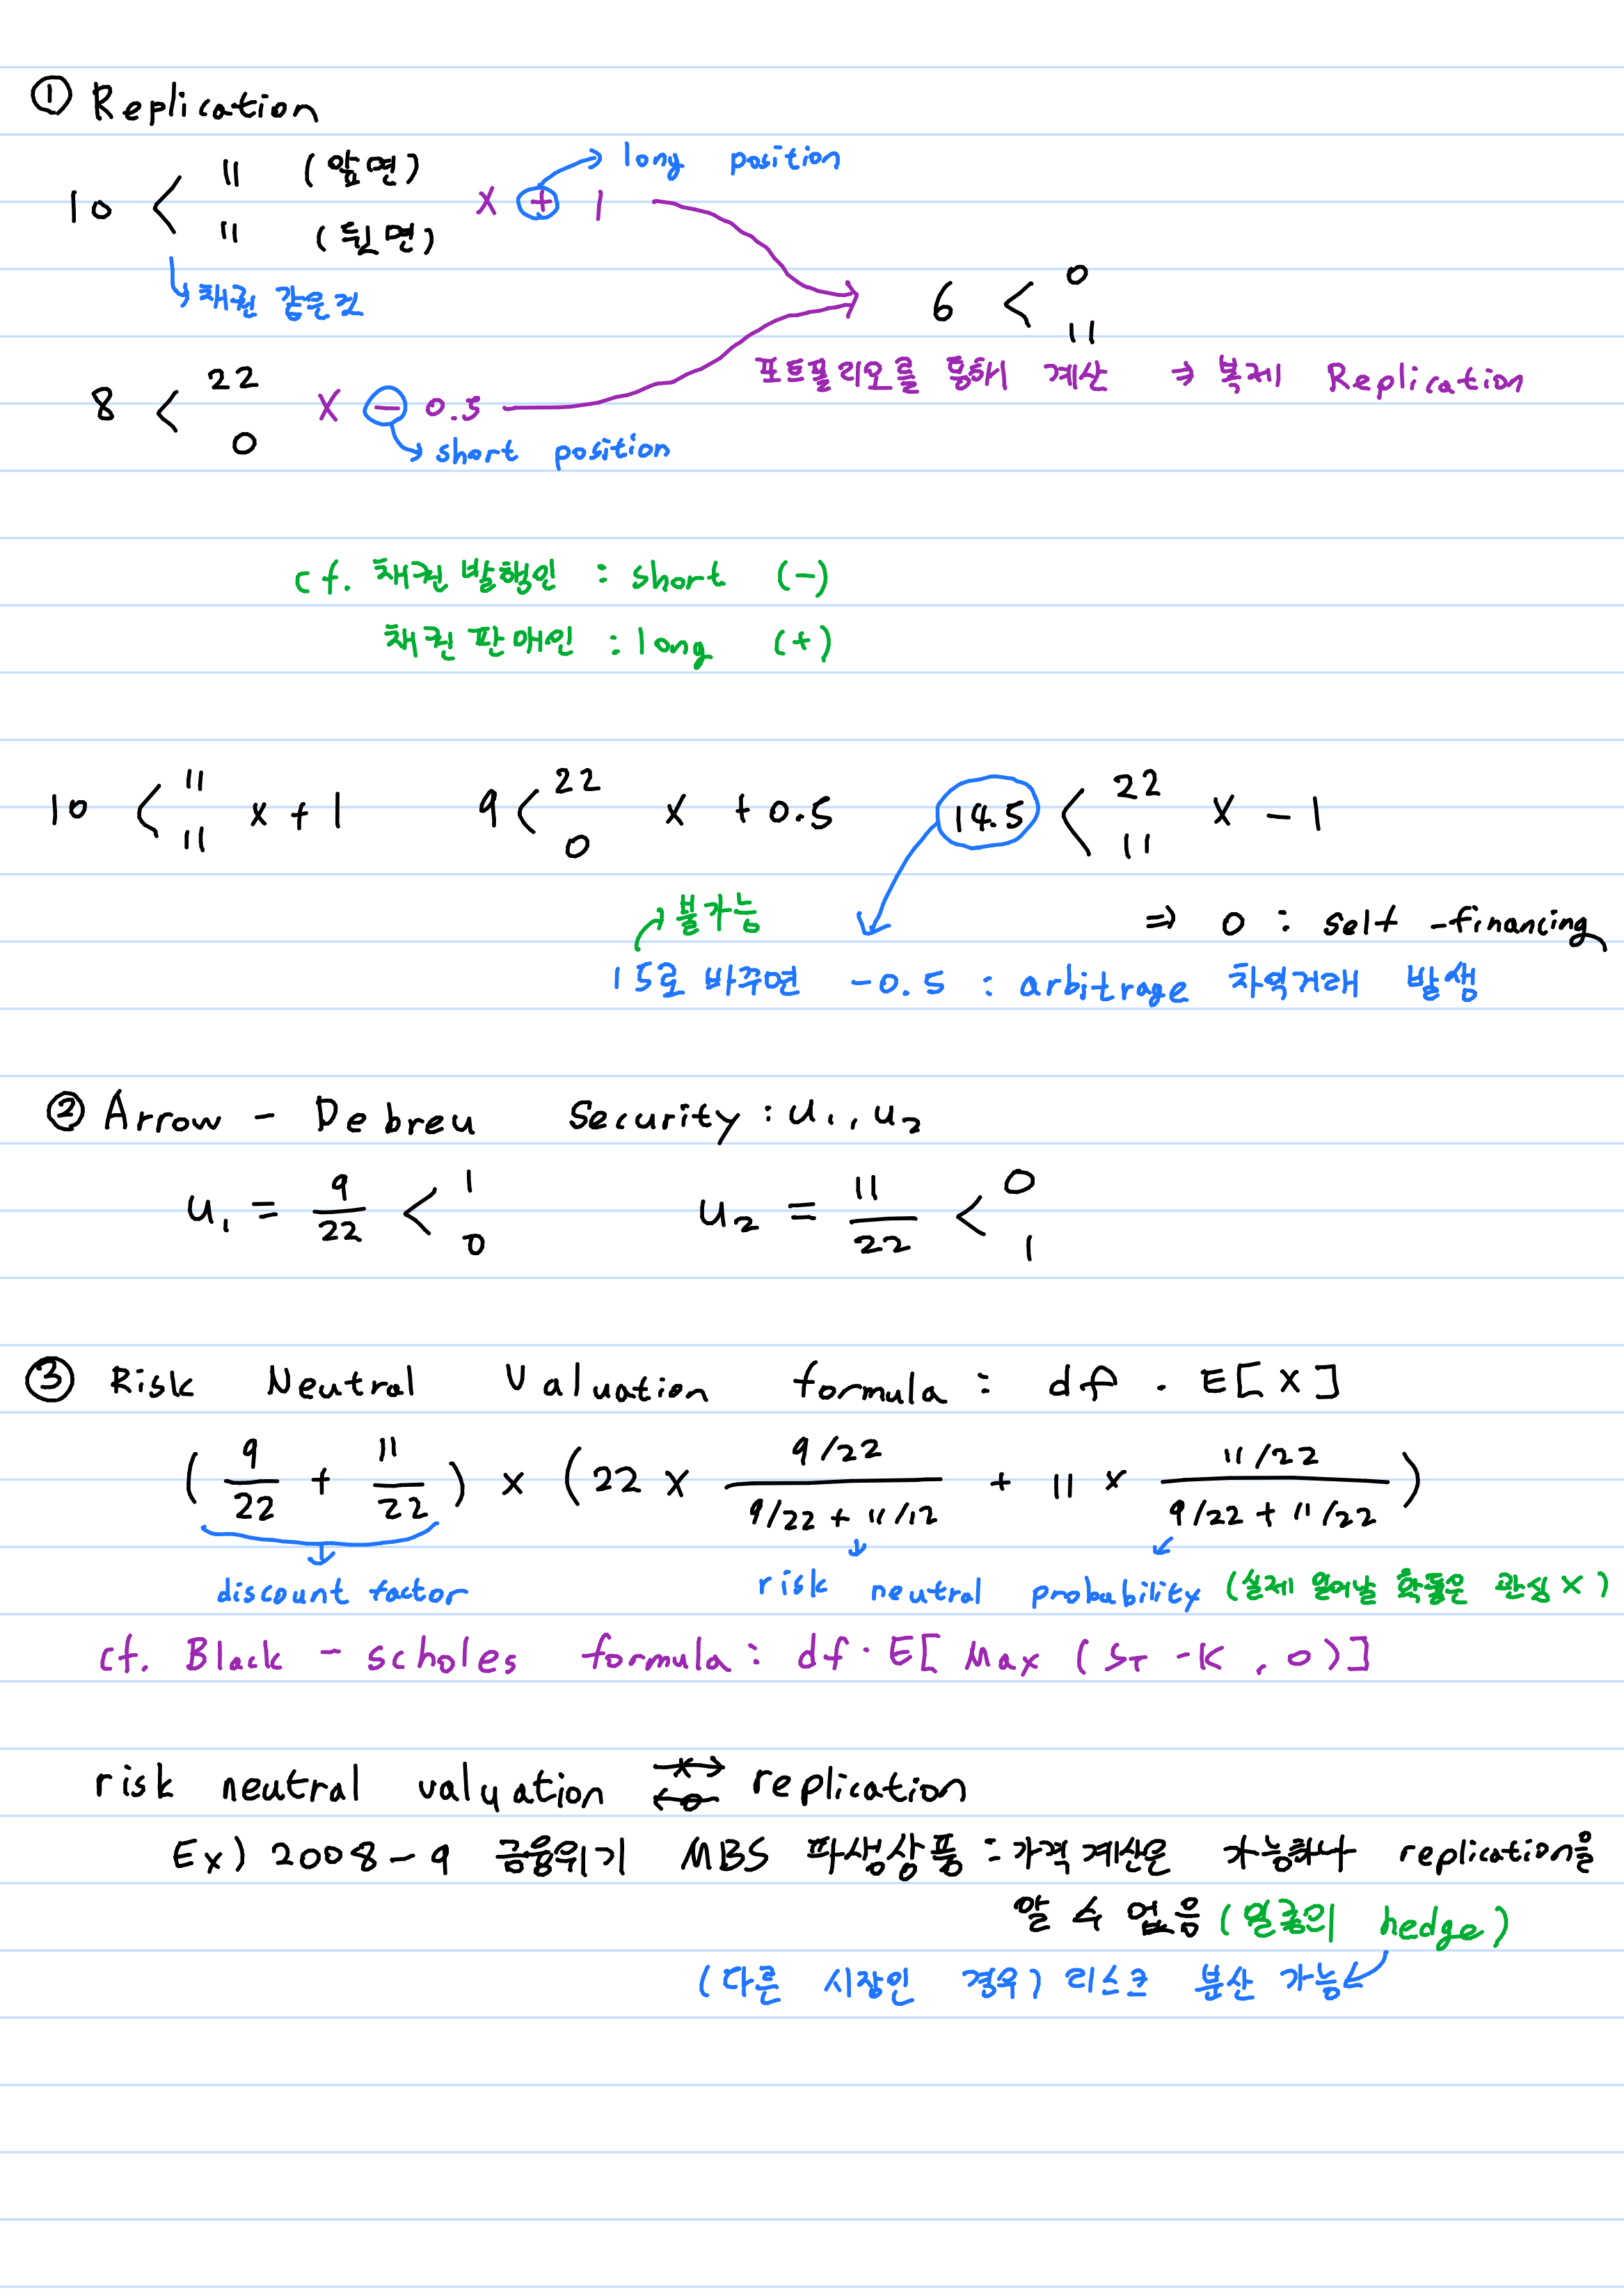 ① Replication
10 < 11 (앞면)
11 (뒷면) × + 1 → long position
↳ 채권 같은것
8 < 22
0 × - 0.5
↳ short position
6 < 0
11
포트폴리오를 통해 계산 ⇒ 복제 Replication
cf. 채권 발행인 : short (-)
채권 판매인 : long (+)
10 < 11
11 × + 1
9 < 22
0 × + 0.5
14.5 < 22
11 × - 1
⇒ 0 : self-financing
불가능
15로 바꾸면 -0.5 : arbitrage 차익거래 발생
② Arrow - Debreu Security : u₁, u₂
u₁ = 9/22 < 1
0
u₂ = 11/22 < 0
1
③ Risk Neutral Valuation formula : df · E[X]
(9/22 + 11/22) × (22 × (9/22)/(9/22 + 11/12) + 11 × (11/22)/(9/22 + 11/22))
discount factor
risk neutral probability (실제 일어날 확률은 관심 X)
cf. Black - scholes formula : df · E[Max (S_T - K, 0)]
risk neutral valuation -x-> <-o- replication
Ex) 2008-9 금융위기 MBS 파생상품 : 가격 계산은 가능하나 replication을
알 수 없음 (일종의 hedge)
(다른 시장인 경우) 리스크 분산 가능